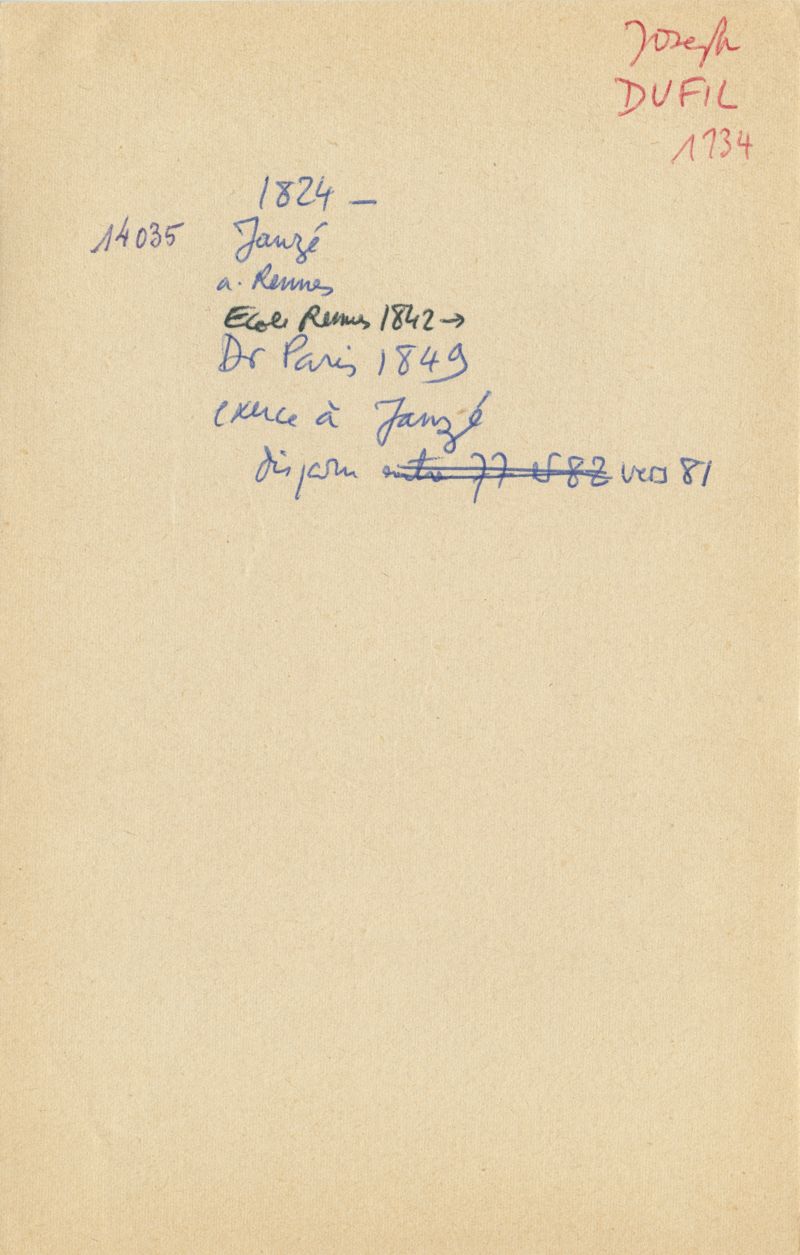 Joseph
DUFIL
1734
1824 –
14035 Janzé
a. Rennes
Ecole Rennes 1842 →
Dr Paris 1849
exerce à Janzé
disparu entre 77 et 82 vers 81